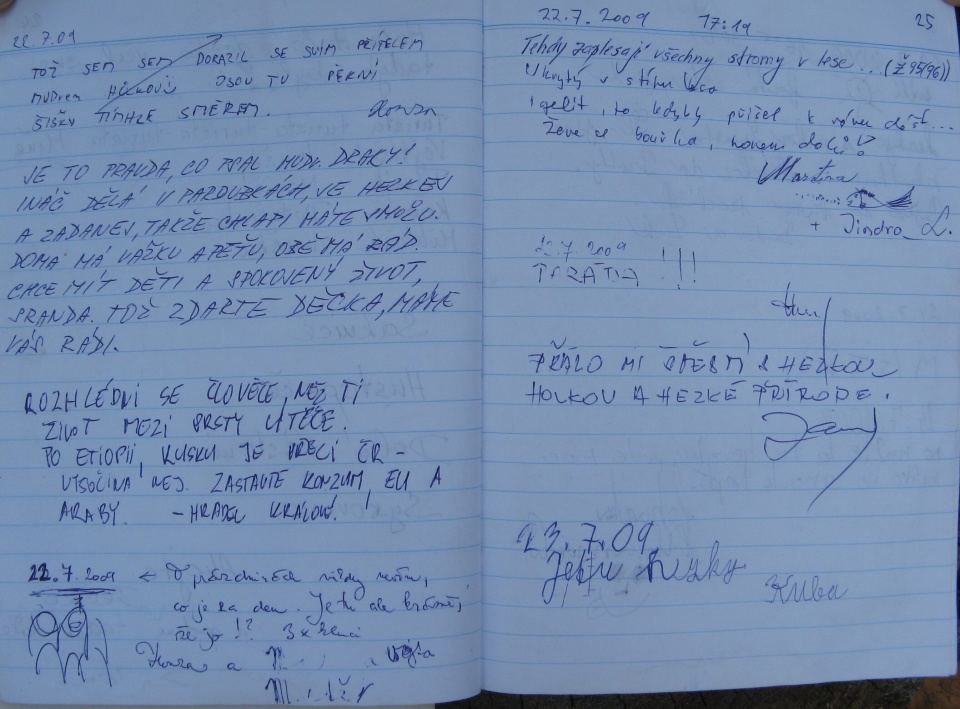 22.7.09
TOŽ SEM SEM DORAZIL SE SVÍM PŘÍTELEM
MUDREM HŮLKOVÝ JSOU TU PĚKNÍ
ŠIŠKY TÍMHLE SMĚREM. Honza
JE TO PRAVDA, CO PSAL MUDr. DRAKY!
INÁČ DĚLÁ V PARDUBKÁCH, JE HEZKEJ
A ZADANEJ, TAKŽE CHLAPI MÁTE SMŮLU.
DOMA MÁ VAŠKU A PÉŤU, OBĚ MÁ RÁD.
CHCE MÍT DĚTI A SPOKOJENÝ ŽIVOT,
SRANDA. TOŽ ZDARTE DĚCKA, MÁME
VÁS RÁDI.
ROZHLÉDNI SE ČLOVĚČE, NEŽ TI
ŽIVOT MEZI PRSTY UTEČE.
PO ETIOPII, KUSKU JE PŘECI ČR -
VYSOČINA NEJ. ZASTAVTE KONZUM, EU A
ARABY. - HRADEC KRÁLOVÉ!
22.7.2009 ← O prázdninách nikdy nevím,
co je za den. Je tu ale krásně,
že jo!? 3x
Honza a Vojta
22.7.2009 17:19 25
Tehdy zaplesají všechny stromy v lese... (Ž 95(96))
Ukrytý v stínu lesa
igelit, to kdyby přišel k ránu déšť...
Žene se bouřka, honem dolů!
Martina
+ Jindra L.
22.7 2009
TSRATIA !!!
PŘÁLO MI ŠTĚSTÍ S HEZKOU
HOLKOU A HEZKÉ PŘÍRODĚ.
23.7.09
Kuba